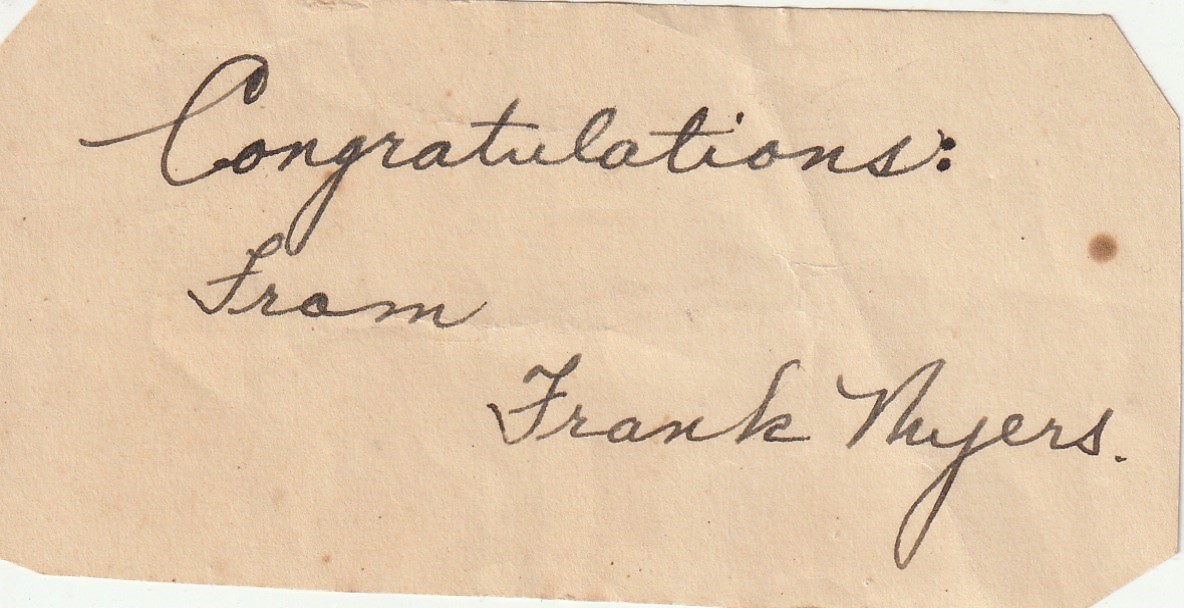 Congratulations:
From
Frank Myers.